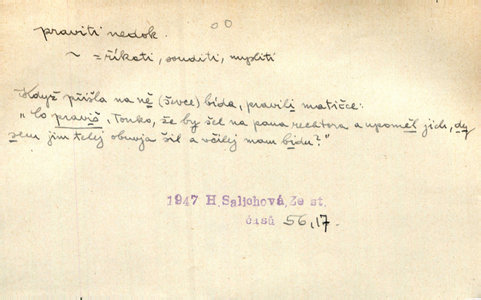 praviti nedok.
~ = říkati, souditi, mysliti
Když přišla na ně (ševce) bída, pravili matičce:
"Co pravíš, Tonko, že by šel na pana rechtora a upoměl jich, dy
sem jim telej obuvja šil a včilej mam bidu?"
1947 H. Saljchová, Ze st.
časů 56, 17.